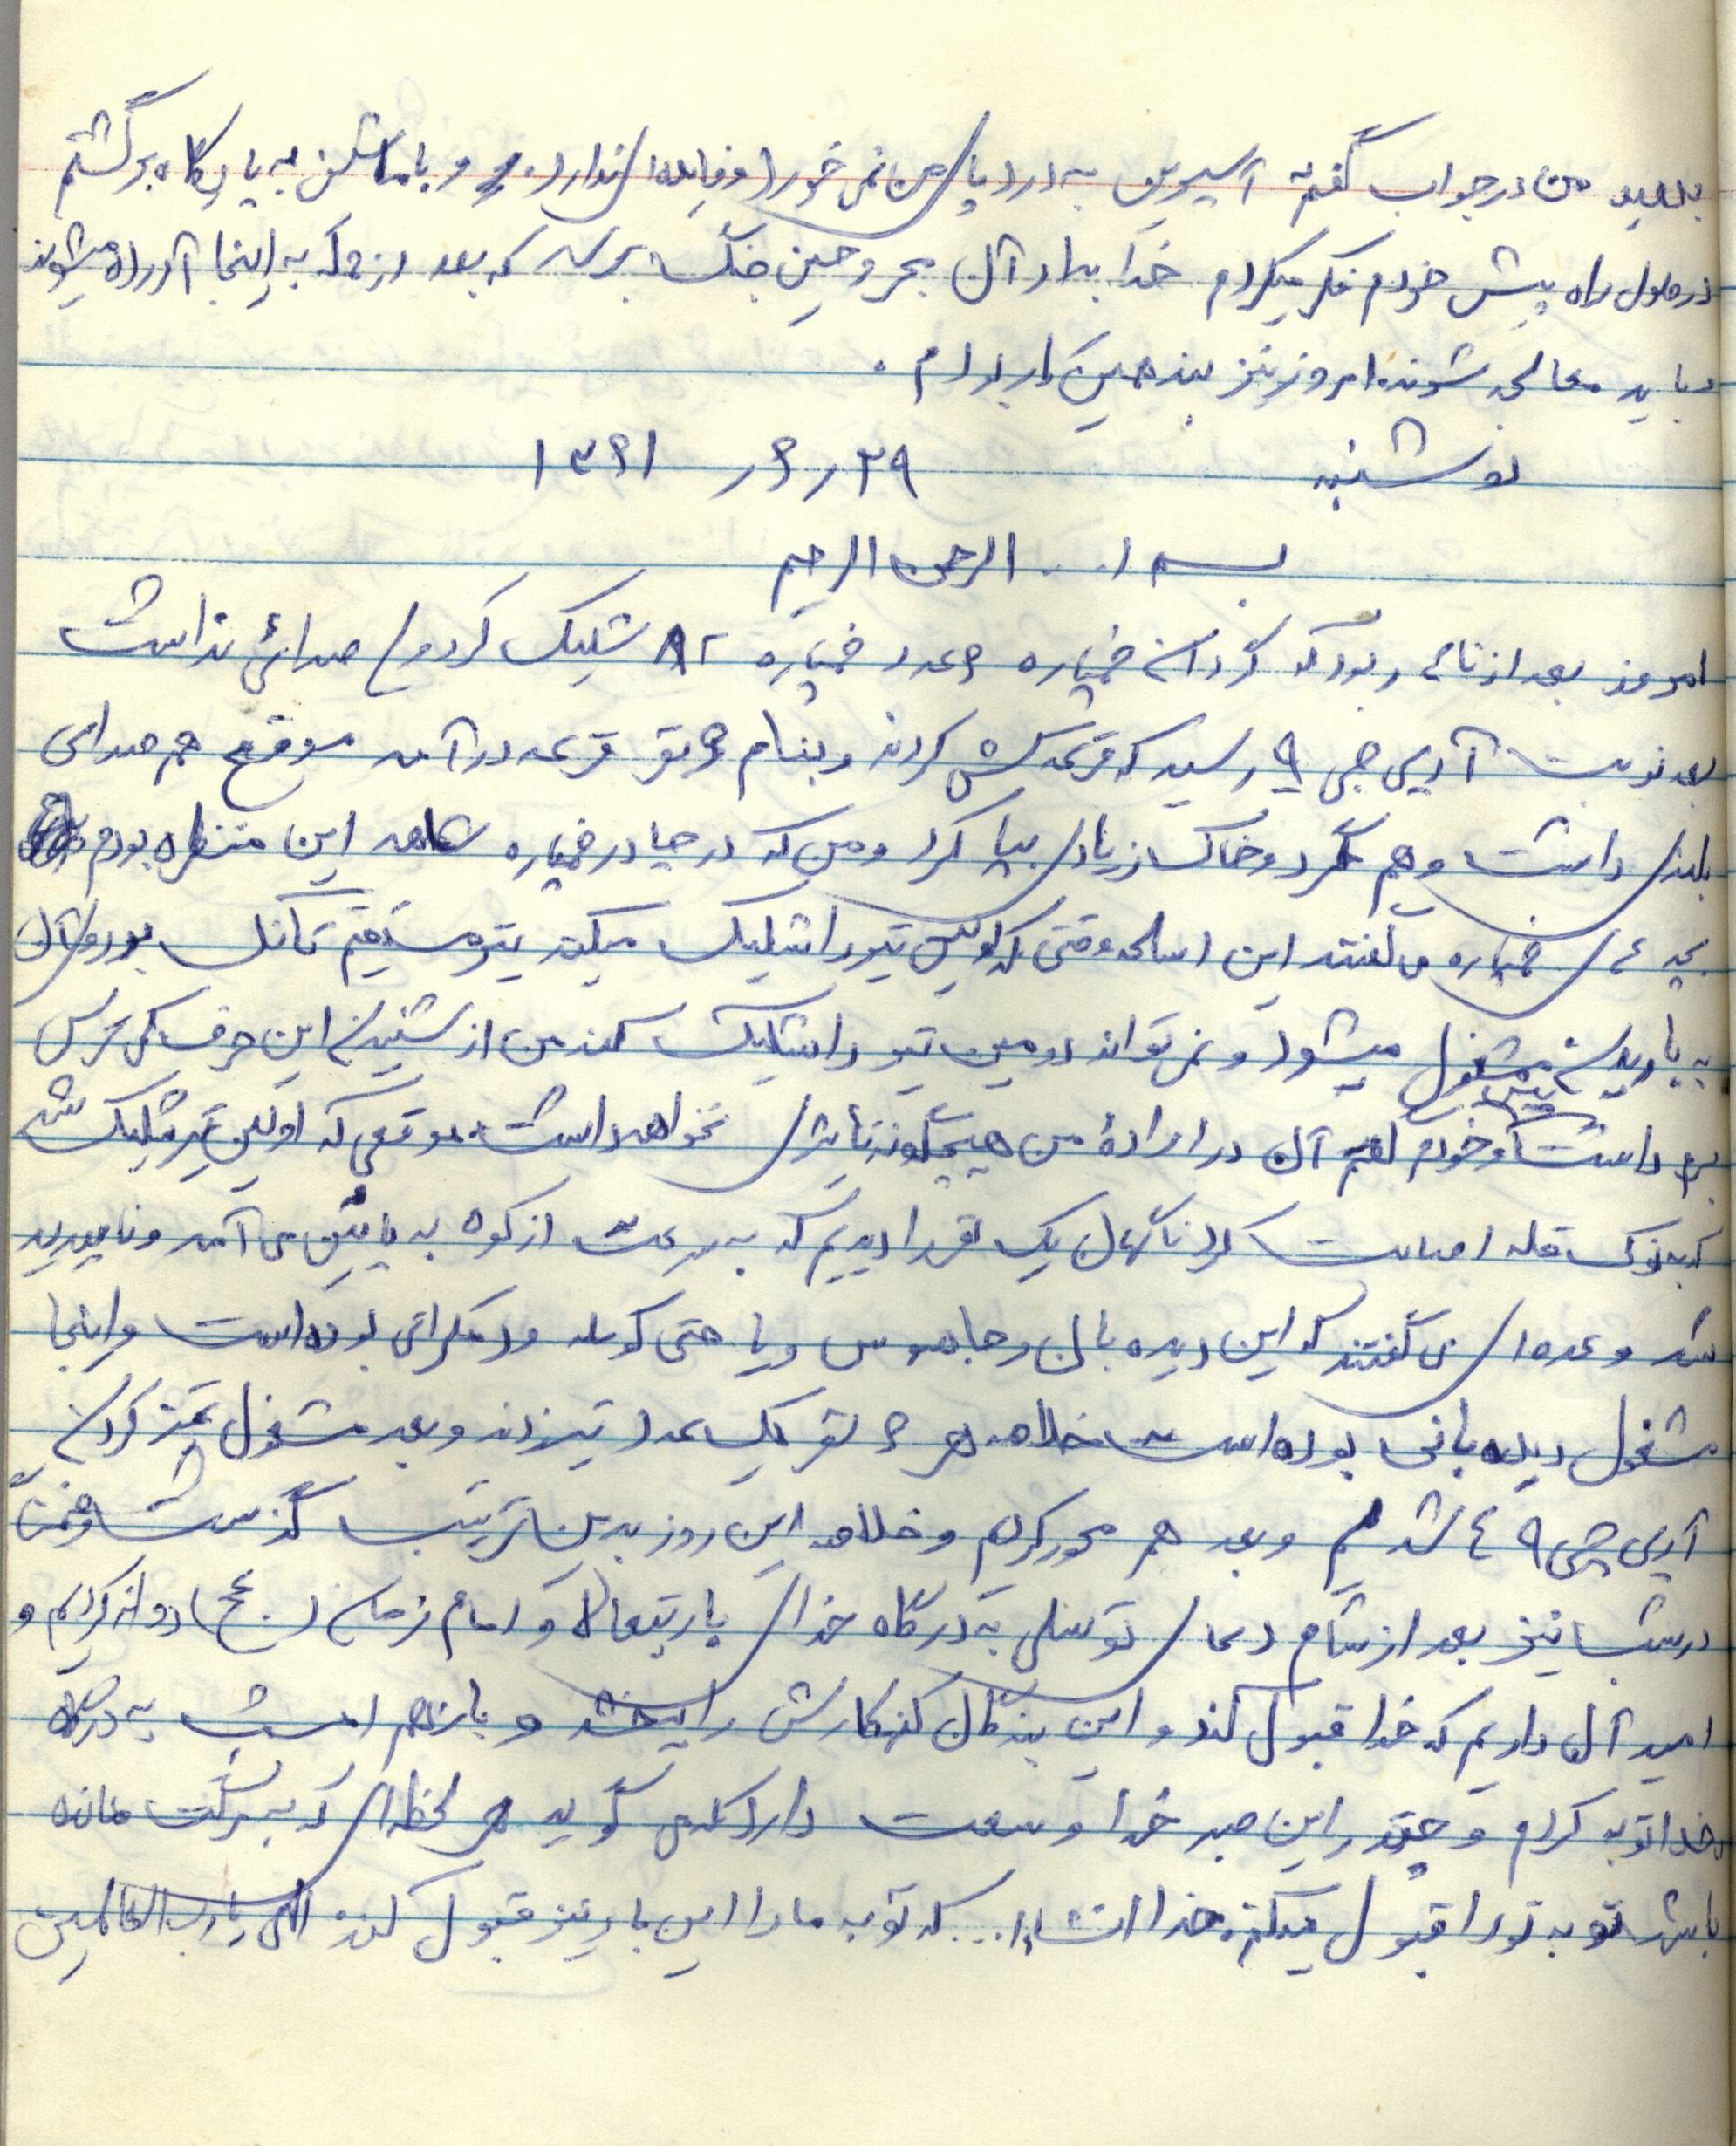 بدهید من در جواب گفتم آسپرین به درد پای من نمی خورد و فایده ای ندارد. و با ماشین به پادگان برگشتم
در طول راه پیش خودم فکر میکردم خدا بداد آن مجروحین جنگ برسد که بعد از جنگ به اینجا آورده میشوند
و باید معالجه شوند امروز نیز بند همین کار بودم.
دوشنبه ۲۹ر۶ر ۱۳۶۱
بسم ا... الرحمن الرحیم
امروز بعد از ناهار بود که گردان خمپاره ۶ عدد خمپاره ۸۲ شلیک کرد ولی صدائی نداشت
بعد نوبت آرپی جی ۹ رسید که قرعه کشی کردند و بنام ۶ نفر قرعه درآمد موقع هم صدای
بلندی داشت و هم گرد و خاک زیادی بپا کرد و من که در چادر خمپاره شاهد این منظره بودم
بچه های خمپاره می گفتند این اسلحه وقتی که اولین تیر را شلیک میکند تیر مستقیم تانک بر روی آن
به باریدن مشغول میشود و نمی تواند دومین تیر را شلیک کند من از شنیدن این حرف کمی ترس
برم داشت و پیش خودم گفتم آن در اراده من هیچگونه تاثیری نخواهد داشت. موقعی که اولین تیر شلیک شد
که به نوک قله اصابت کرد ناگهان یک نفر را دیدیم که به سرعت از کوه به پائین می آمد و ناپدید
شد و عده ای می گفتند که این دیده بان و جاسوس و یا حتی کومله و دمکراتی بوده است و اینجا
مشغول دیده بانی بوده است خلاصه هر ۶ نفر یک عدد تیر زدند و بعد مشغول تمیز کردن
آرپی جی ۹ ها شدیم و بعد هم مجبور کردم و خلاصه این روز بدین ترتیب گذشت و ضمناً
در شب نیز بعد از شام دعای توسلی به درگاه خدای باریتعالا و امام زمان (عج) روانه کردیم و
امید آن داریم که خدا قبول کند و این بندگان گنه کارش را ببخشد و باز هم امشب به درگاه
خدا توبه کردم و چقدر این صبر خدا وسعت دارد که می گوید هر لحظه ای که به مرگت مانده
باشد توبه تو را قبول میکنم. خدا انشاا... که توبه ما را این بار نیز قبول کند الهی یارب العالمین